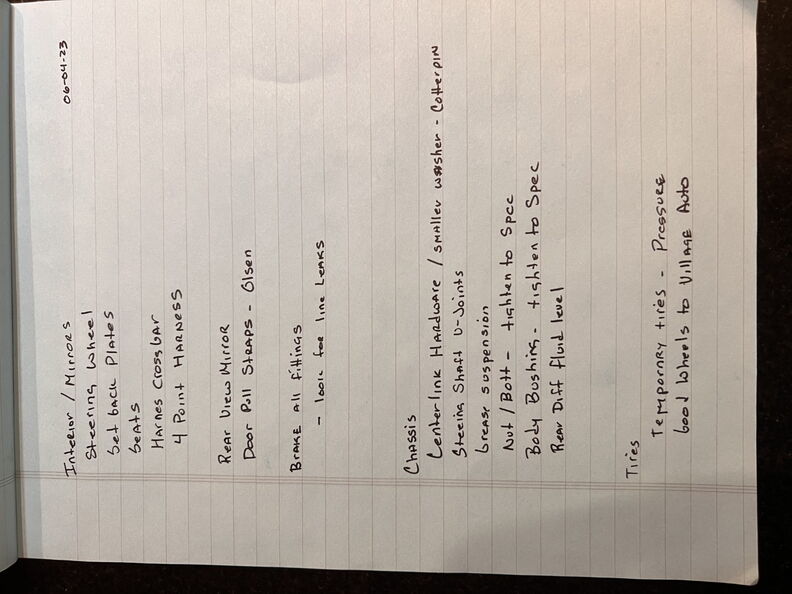 06-04-23
Interior / Mirrors
Steering Wheel
Set back Plates
Seats
Harnes Crossbar
4 Point HARNESS
Rear View Mirror
Door Pull STRAPS - Olsen
BRAKE All fittings
- look for line LEAKS
Chassis
Centerlink Hardware / smaller washer - Cotterpin
Steeing Shaft U-Joints
Grease suspension
Nut / Bolt - tighten to Spec
Body Bushing - tighten to Spec
Rear Diff fluid level
Tires
Temporary tires - Pressure
Good Wheels to Village Auto